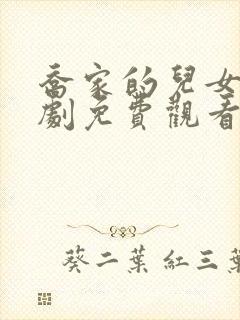 喬家的兒女
劇免費觀看
葵二葉紅三葉